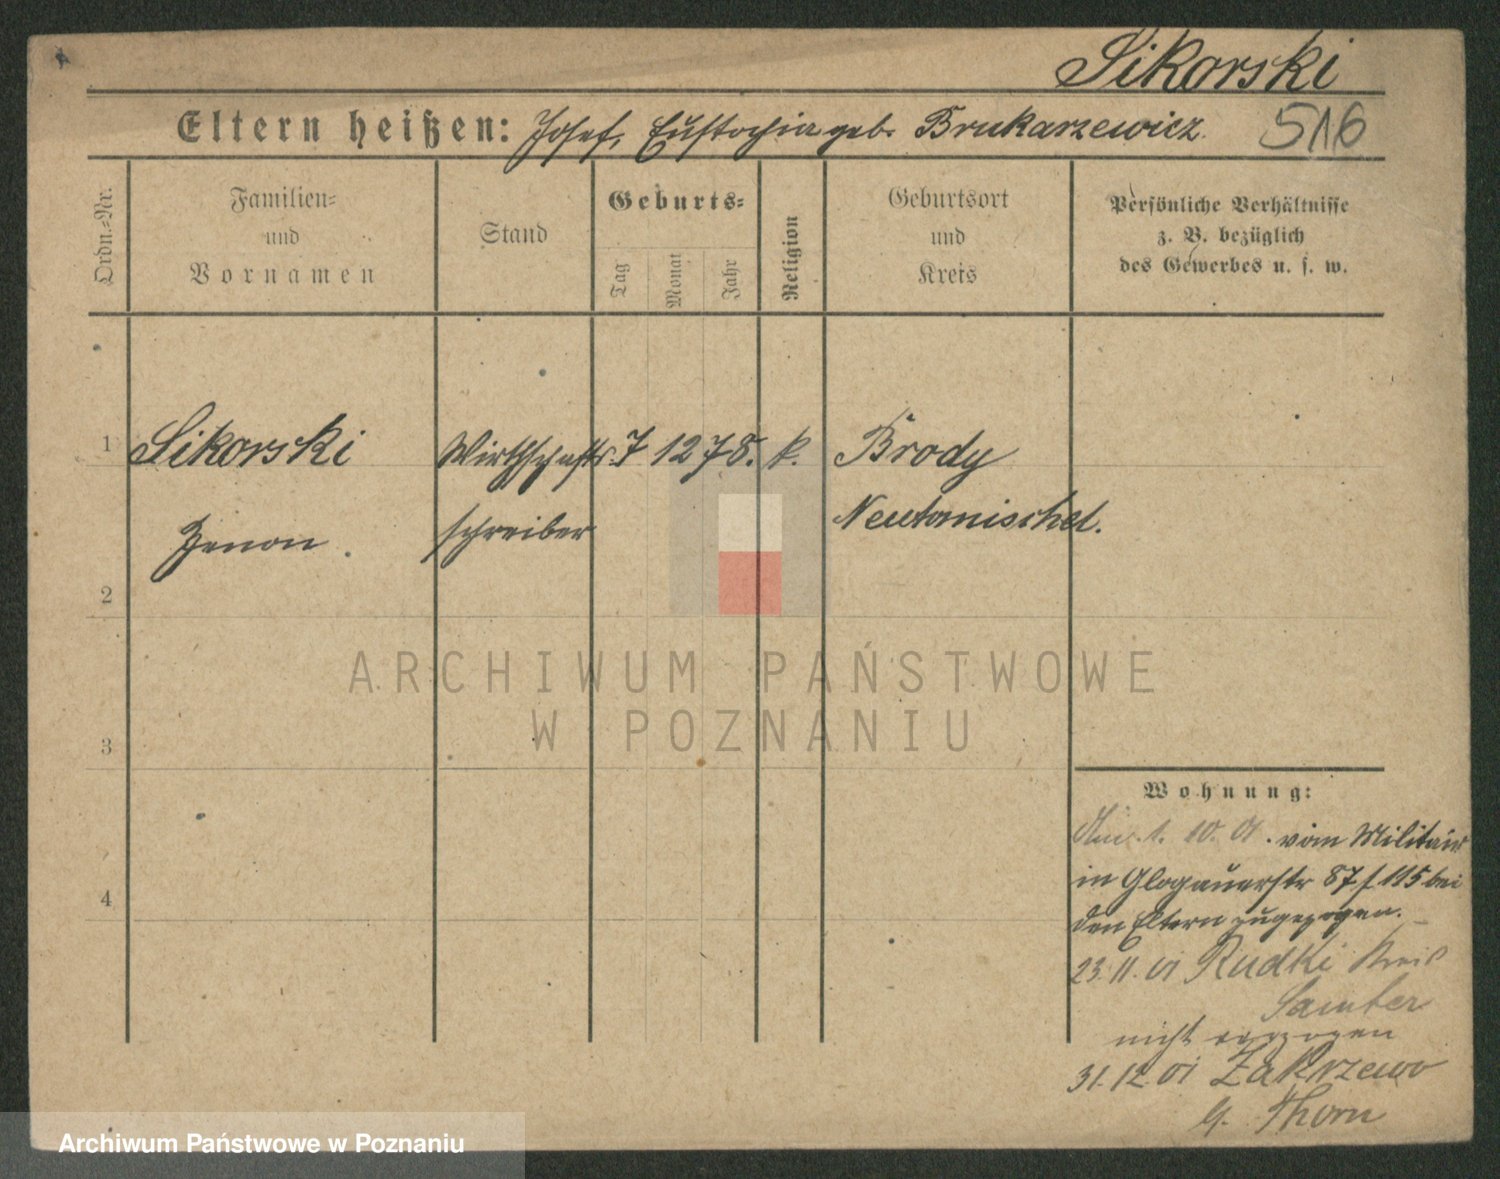 Sikorski
Eltern heißen: Josef, Eustochia geb. Brukarzewicz
516
Ordn.-Nr.
Familien-
und
Vornamen
Stand
Geburts-
Tag
Monat
Jahr
Religion
Geburtsort
und
Kreis
Persönliche Verhältnisse
z. B. bezüglich
des Gewerbes u. s. w.
1 Sikorski Wirthschafts. 7 12 78. k. Brody
Zenon. schreiber Neutomischel.
2
3
4
ARCHIWUM PAŃSTWOWE
W POZNANIU
Wohnung:
1. 10. 01. vom Militair
in Glogauerstr 87 f 115 bei
den Eltern zugezogen.
23. 11. 01 Rudki Kreis
Samter
nicht verzogen
31. 12. 01 Zakrzewo
Thorn
Archiwum Państwowe w Poznaniu